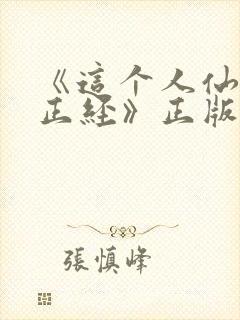 《這个人仙
正經》正版
張慎峰